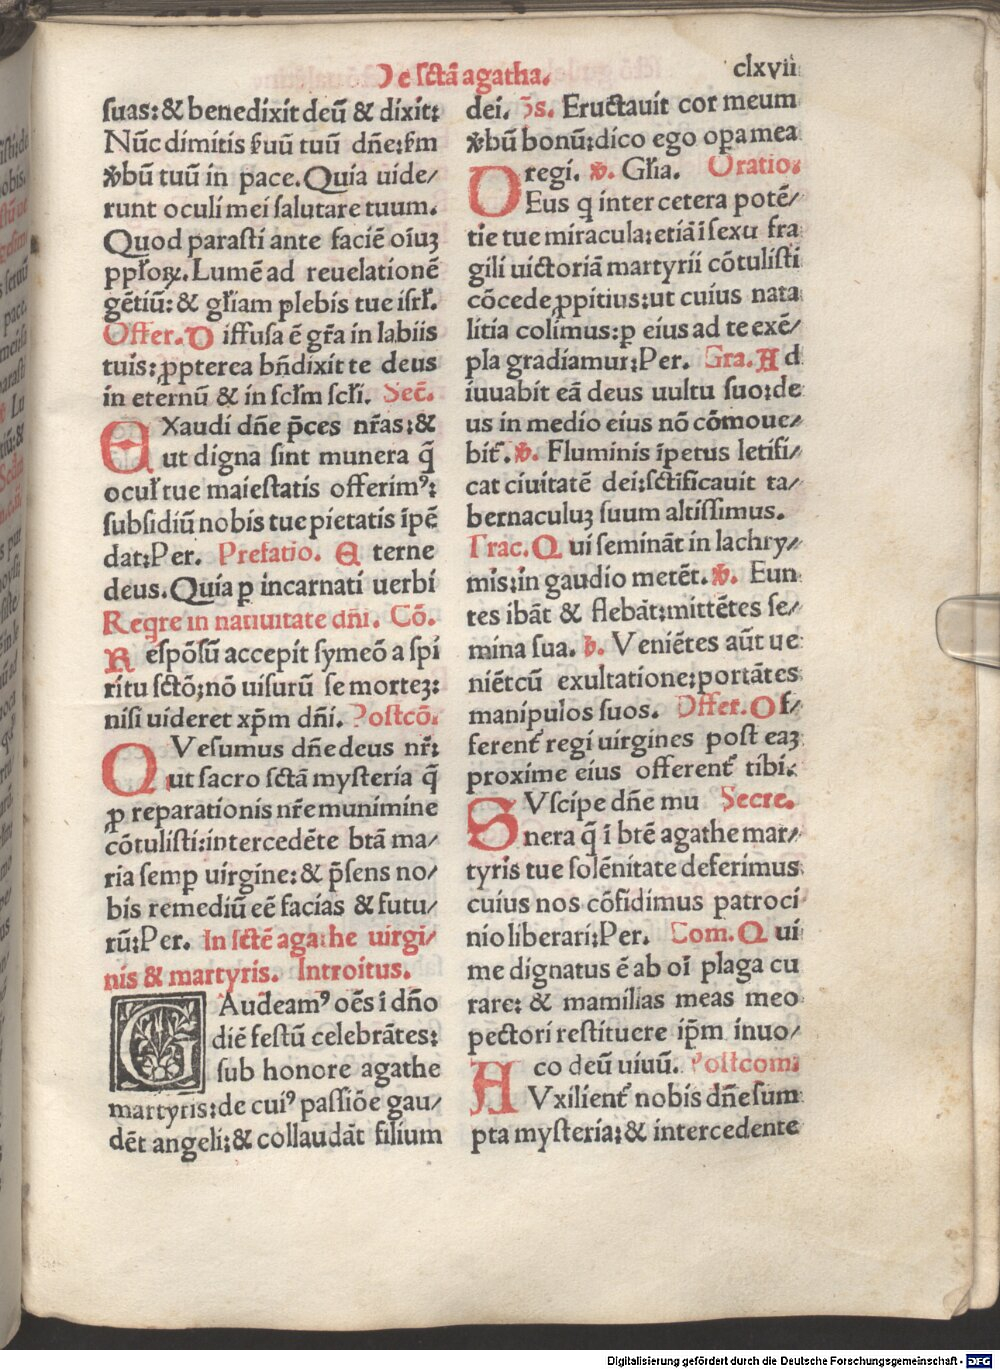 De sctā agatha.
clxvii
suas: & benedixit deū & dixit:
Nūc dimitis ẜuū tuū dñe: ẜm
v̄bū tuū in pace. Quia uide/
runt oculi mei salutare tuum.
Quod parasti ante faciē oīuꝫ
pploꝝ. Lumē ad reuelationē
gētiū: & gl̄iam plebis tue isrl̄.
Offer. D iffusa ē gr̄a in labiis
tuis: ꝓpterea bn̄dixit te deus
in eternū & in scl̄m scl̄i. Sec̄.
EXaudi dñe p̄ces nr̄as: &
ut digna sint munera q̄
ocul̄ tue maiestatis offerimꝰ:
subsidiū nobis tue pietatis īpē
dat: Per. Prefatio. E terne
deus. Quia p incarnati uerbi
Reqre in natiuitate dn̄i. Cō.
R espōsū accepit symeō a spi
ritu sctō: nō uisurū se morteꝫ:
nisi uideret xp̄m dn̄i. Postcō.
QVesumus dñe deus nr̄:
ut sacro sctā mysteria q̄
ꝓ reparationis nr̄e munimine
cōtulisti: intercedēte btā ma/
ria semp uirgine: & p̄sens no/
bis remediū eē facias & futu/
rū: Per. In sctē agathe uirgi/
nis & martyris. Introitus.
GAudeamꝰ oēs ī dño
diē festū celebrātes:
sub honore agathe
martyris: de cuiꝰ passiōe gau/
dēt angeli: & collaudāt filium
dei. p̄s. Eructauit cor meum
v̄bū bonū: dico ego opa mea
regi. v̄. Gl̄ia. Oratio.
DEus q inter cetera potē/
tie tue miracula: etiā ī sexu fra
gili uictoriā martyrii cōtulisti
cōcede ꝓpitius: ut cuius nata
litia colimus: p eius ad te exē/
pla gradiamur: Per. Gra. A d
iuuabit eā deus uultu suo: de
us in medio eius nō cōmoue/
bit̄. v̄. Fluminis īpetus letifi/
cat ciuitatē dei: sctificauit ta/
bernaculuꝫ suum altissimus.
Trac. Q ui semināt in lachry/
mis: in gaudio metēt. v̄. Eun
tes ibāt & flebāt: mittētes se/
mina sua. v̄. Veniētes aūt ue
niēt cū exultatione: portātes
manipulos suos. Offer. O f/
ferent̄ regi uirgines post eaꝫ
proxime eius offerent̄ tibi.
SVscipe dñe mu Secre.
nera q̄ ī btē agathe mar/
tyris tue solēnitate deferimus
cuius nos cōfidimus patroci
nio liberari: Per. Com. Q ui
me dignatus ē ab oī plaga cu
rare: & mamillas meas meo
pectori restituere ip̄m inuo/
co deū uiuū. Postcom.
AVxilient̄ nobis dñe sum
pta mysteria: & intercedente
Digitalisierung gefördert durch die Deutsche Forschungsgemeinschaft - DFG